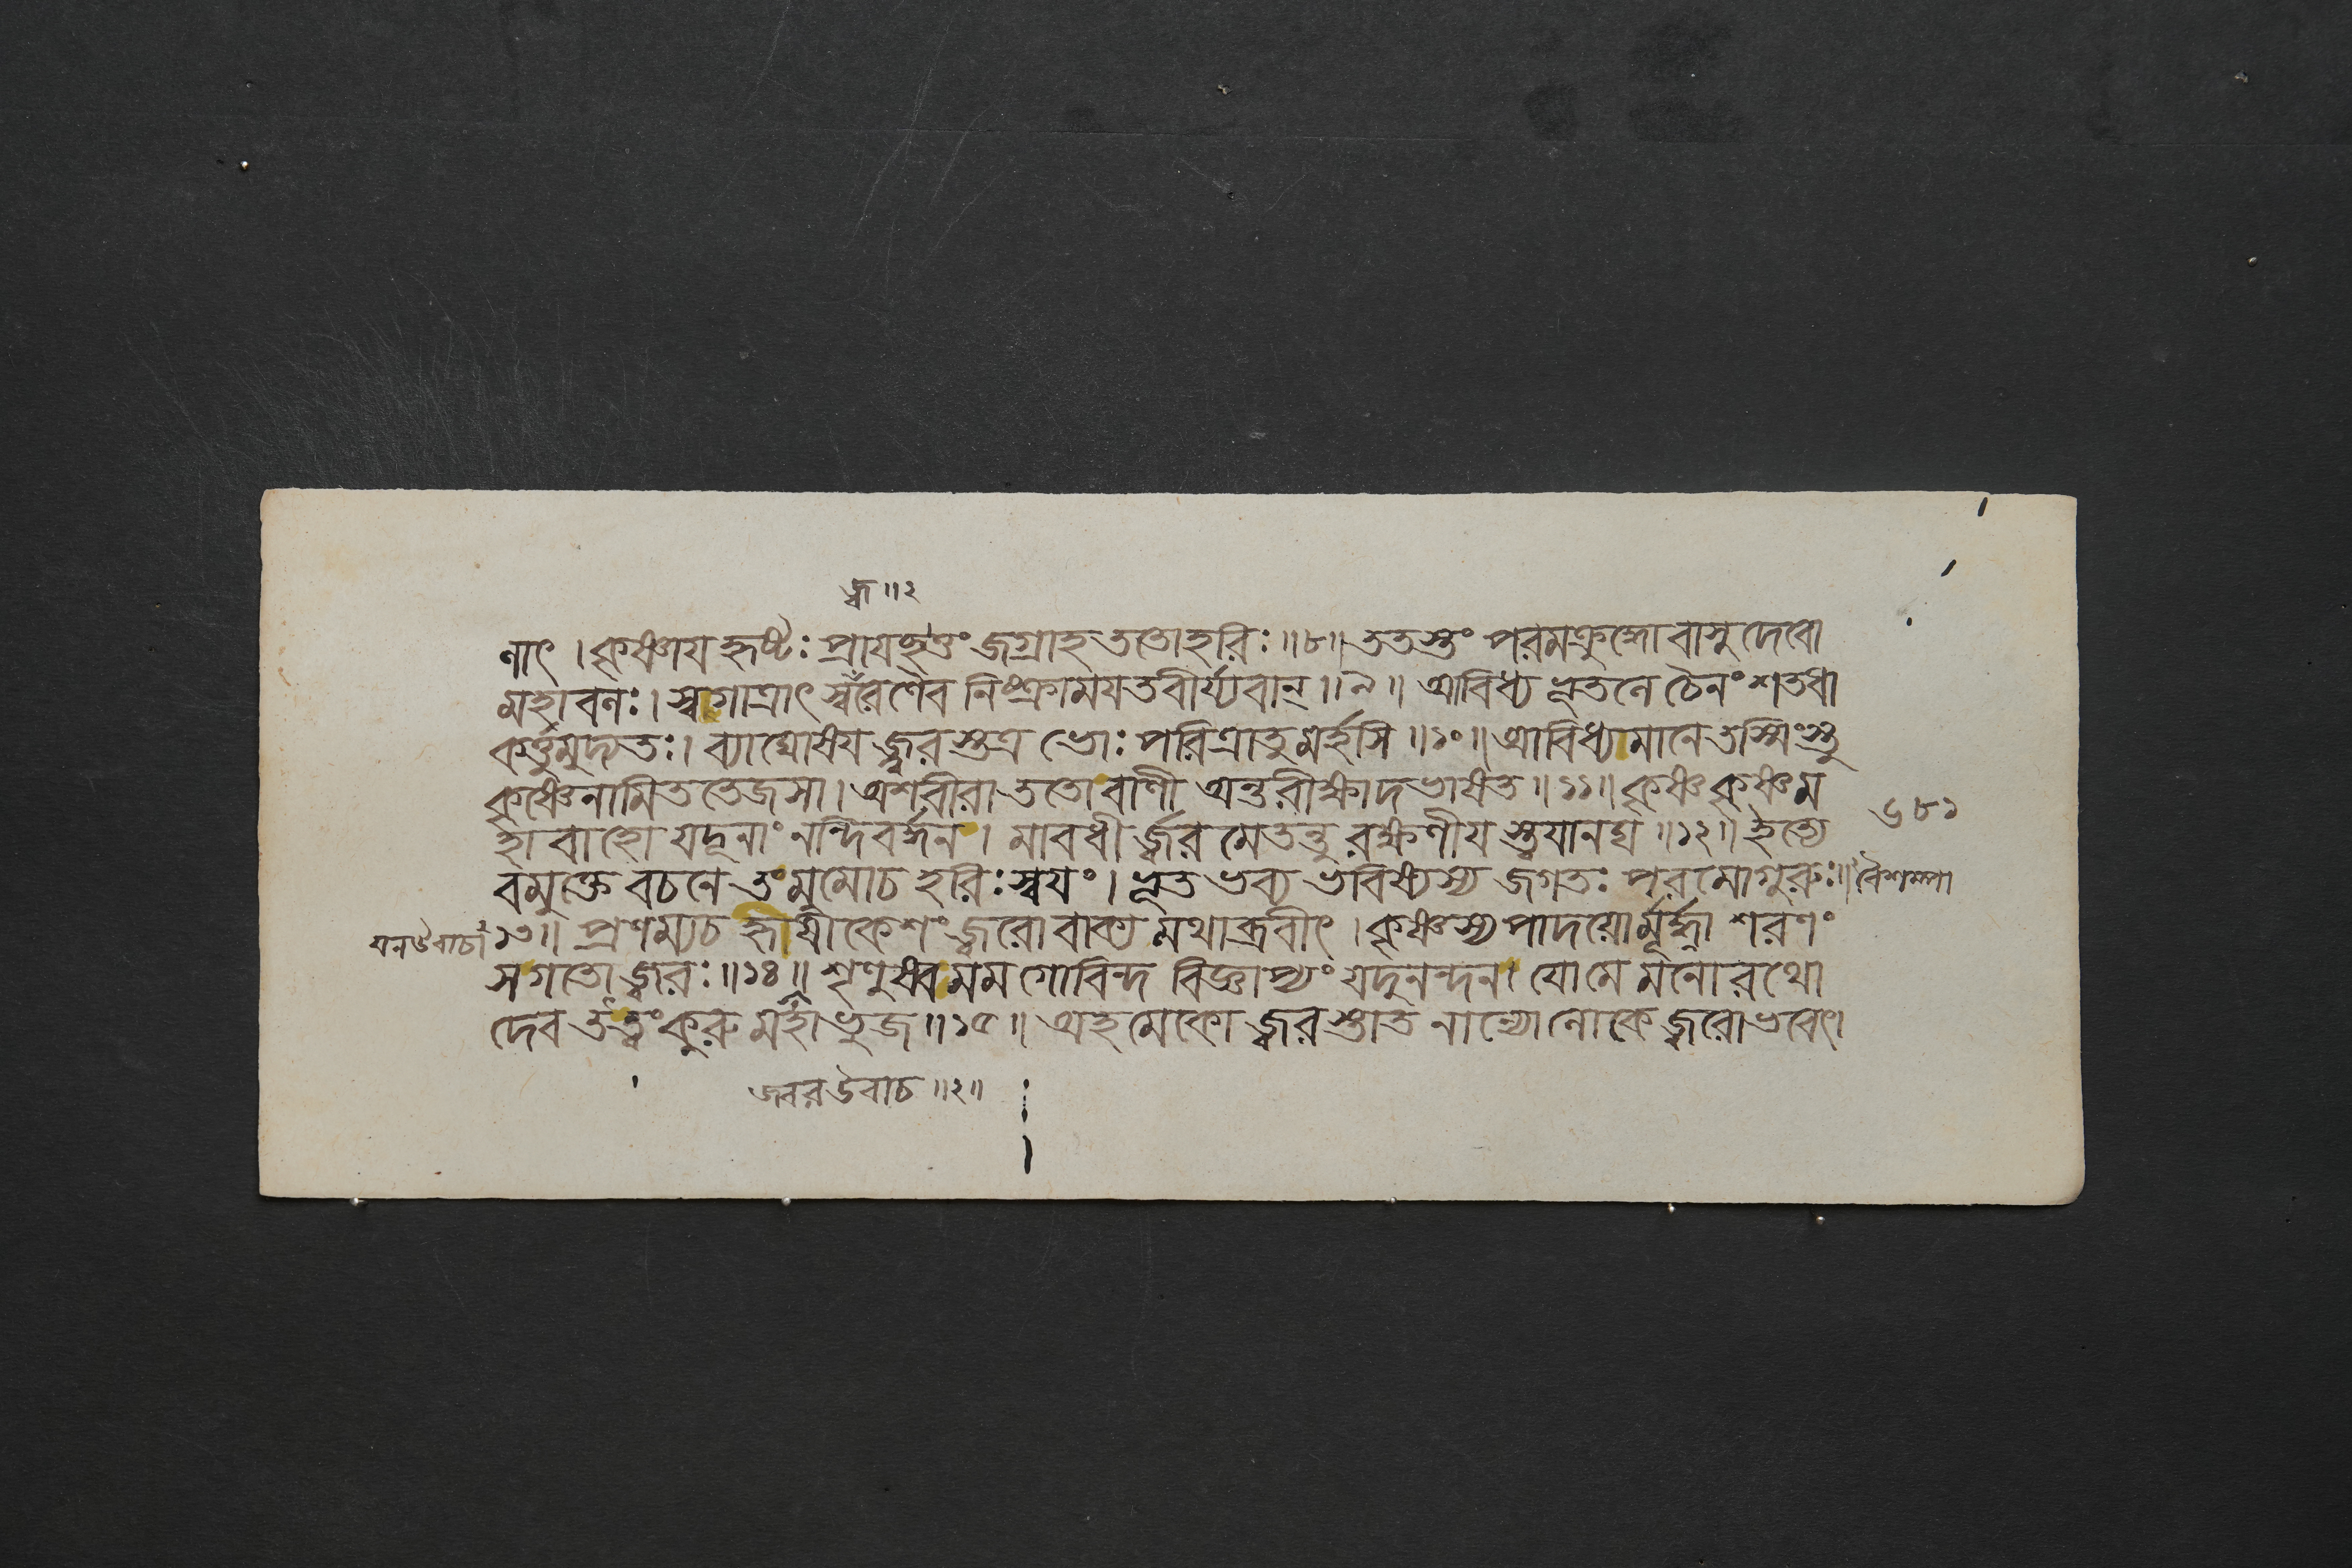 জ্ব॥২
ণাৎ । কৃষ্ণায হৃষ্টঃ প্রাযচ্ছত্তং জগ্রাহ ততোহরিঃ ॥৮॥ ততস্তং পরমক্রুদ্ধো বাসুদেবো
মহাবলঃ। স্বগাত্রাৎ স্বরেণৈব নিষ্ক্রামযত বীর্য্যবান্ ॥৯॥ আবিধ্য ভূতলে চৈনং শতধা
কর্ত্তুমুদ্যতঃ। ব্যাঘোষয জ্জ্বরস্তত্র ভোঃ পরিত্রাতুমর্হসি ॥১০॥ আবিধ্যমানে তস্মিংস্তু
কৃষ্ণেনামিততেজসা। অশরীরা ততো বাণী অন্তরীক্ষাদভাষত ॥১১॥ কৃষ্ণ কৃষ্ণ ম
হাবাহো যদূনাং নন্দিবর্দ্ধন। মাবধী র্জ্বরমেতন্তু রক্ষণীয স্ত্বযানঘ ॥১২॥ ইত্যে
বমুক্তে বচনে তং মুমোচ হরিঃ স্বযং। ভূত ভব্য ভবিষ্যস্য জগতঃ পরমোগুরুঃ॥ বৈশম্পা
যনউবাচ ১৩॥ প্রণম্যচ হৃষীকেশং জ্বরো বাক্য মথাব্রবীৎ । কৃষ্ণস্য পাদযোর্মূর্দ্ধ্না শরণং
সগতো জ্বরঃ ॥১৪॥ শৃণুষ্ব মম গোবিন্দ বিজ্ঞাপ্যং যদুনন্দন। যো মে মনোরথো
দেব তত্ত্বং কুরু মহাভুজ ॥১৫॥ অহমেকো জ্বরস্তাত নান্যো লোকে জ্বরো ভবেৎ।
জ্বর উবাচ ॥২॥
৬৮১